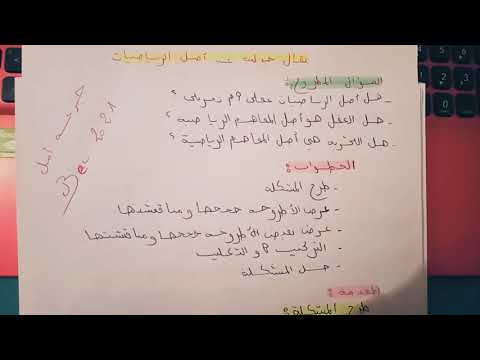 مقال جدلية عن أصل الرياضيات
السؤال المطروح:
- هل أصل الرياضيات عقلي أم تجريبي؟
- هل العقل هو أصل المفاهيم الرياضية؟
- هل التجربة هي أصل المفاهيم الرياضية؟
الخطوات:
- طرح المشكلة
- عرض الأطروحة حججها ومناقشتها
- عرض نقيض الأطروحة حججها ومناقشتها
- التركيب أو التغليب
- حل المشكلة
المقدمة:
طرح المشكلة:
أمل
Bac 2021